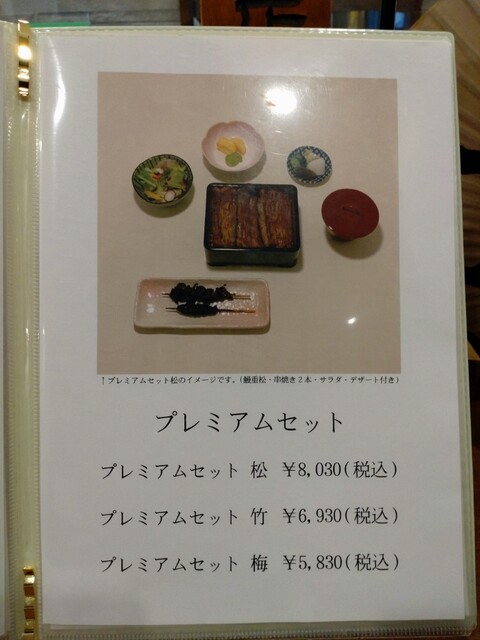 ↑プレミアムセット松のイメージです。(鰻重松・串焼き2本・サラダ・デザート付き)
プレミアムセット
プレミアムセット 松 ¥8,030(税込)
プレミアムセット 竹 ¥6,930(税込)
プレミアムセット 梅 ¥5,830(税込)